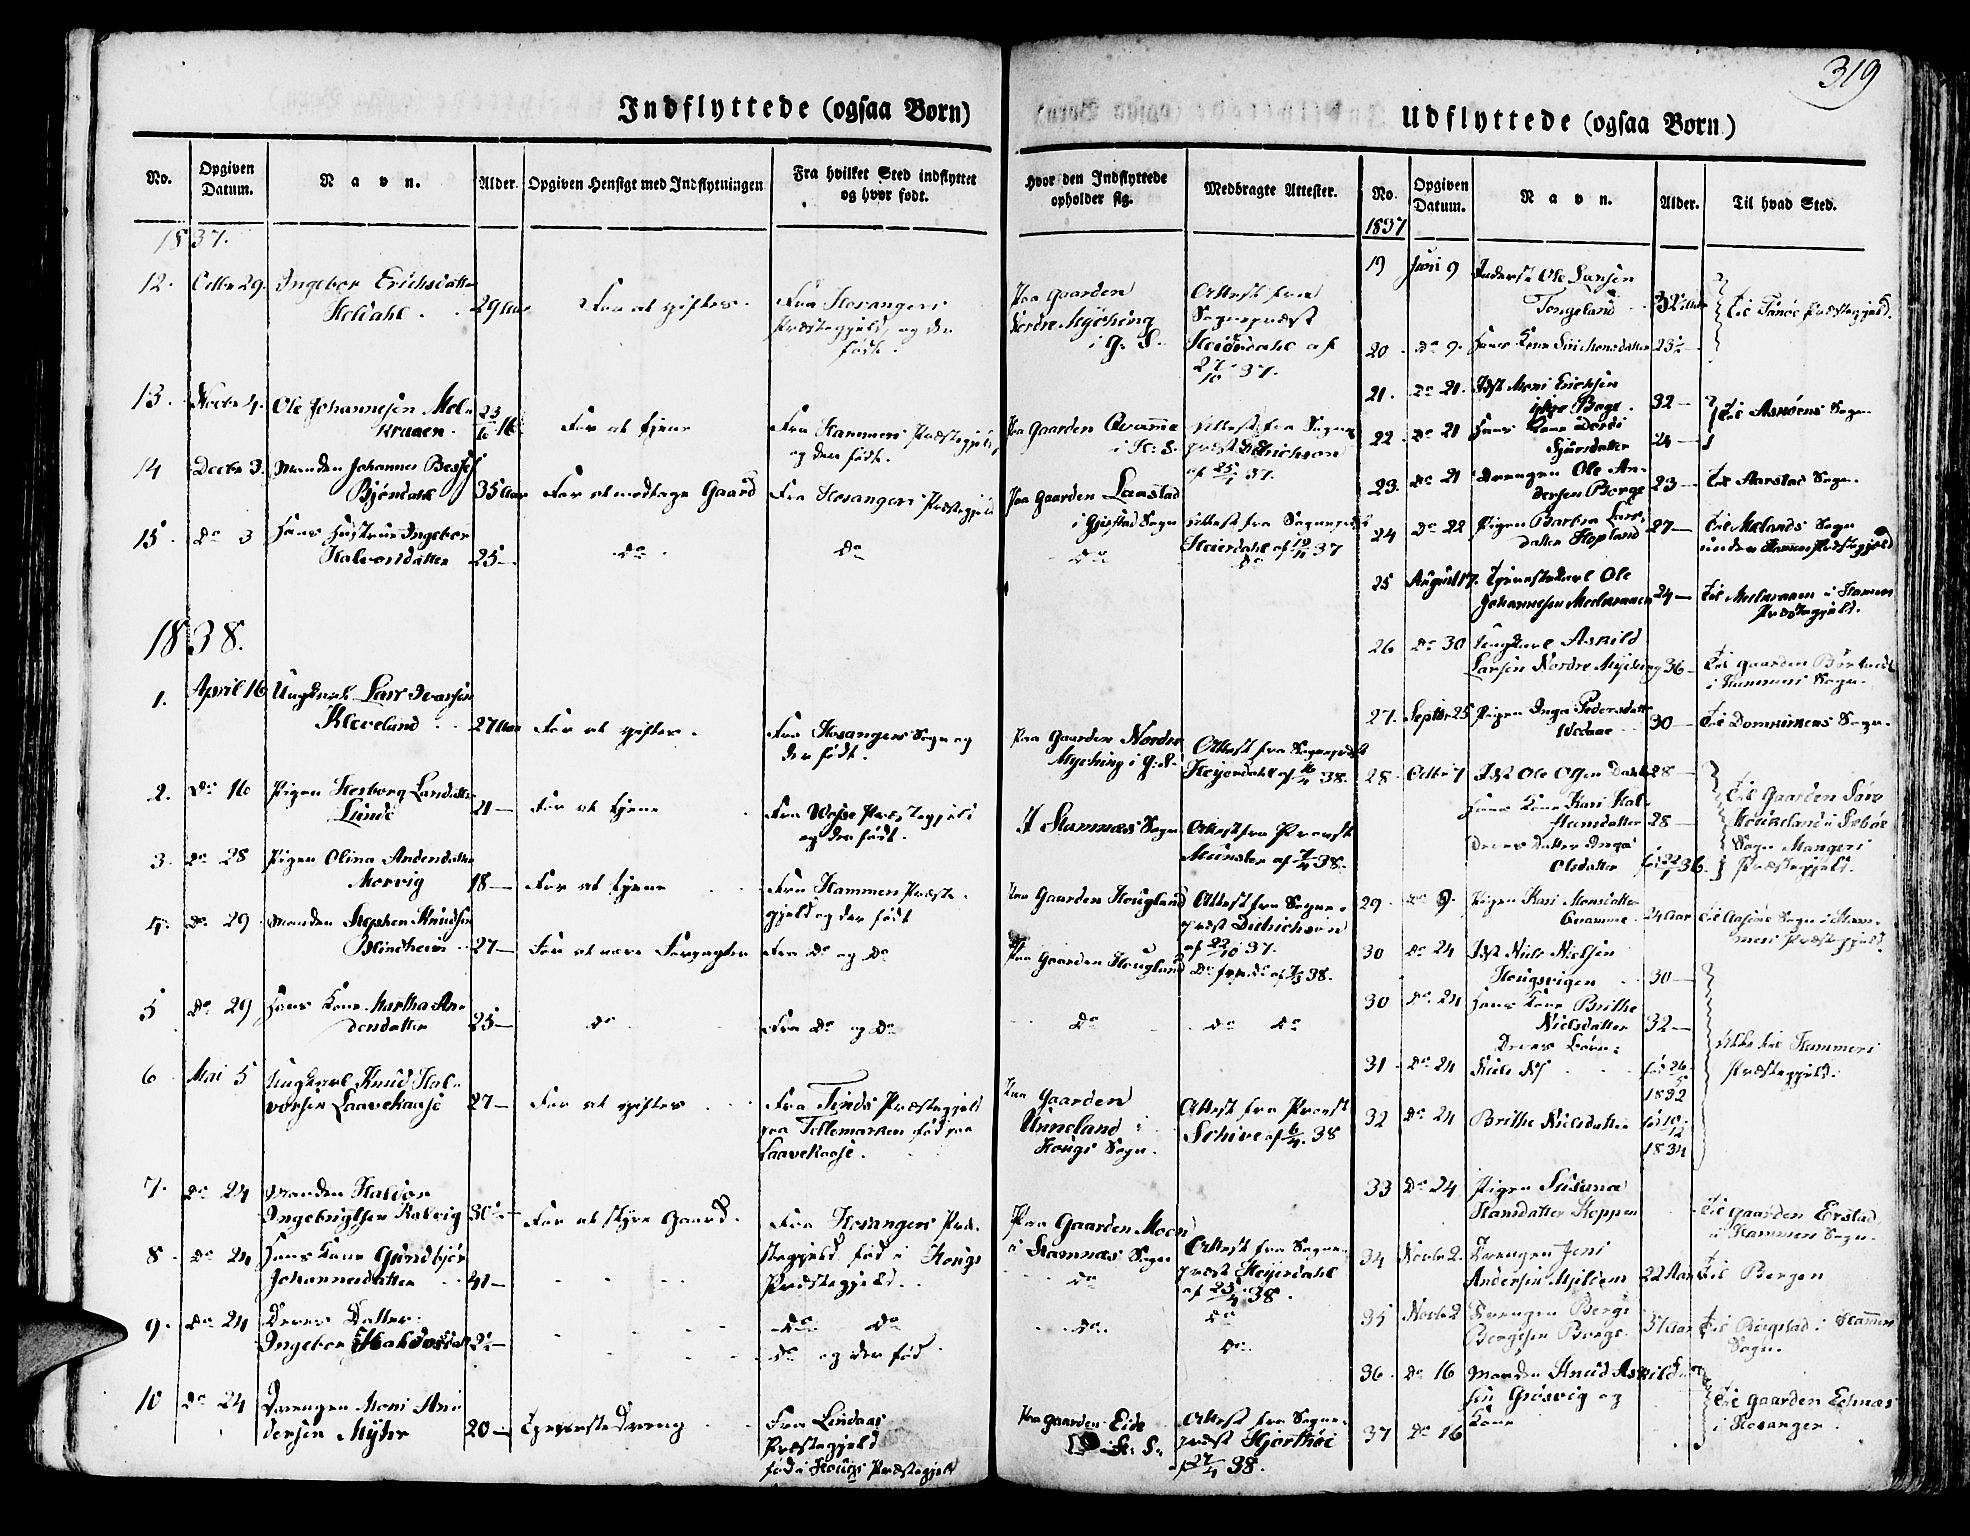 319
Indflyttede (ogsaa Børn)
No. Opgiven Datum. Navn. Alder. Opgiven Hensigt med Indflytningen Fra hvilket Sted indflyttet og hvor født. Hvor den Indflyttede opholder sig. Medbragte Attester.
1837.
12. Octbr 29. Ingebor Erichsdatter
29 Aar For at giftes. Fra Hosangers
Præstegjeld, og der
født.
Paa Gaarden
Nordre Myching
i G. S.
Attest fra
Sognepræst
Heierdahl af
27/10 37.
13. Novbr 4. Ole Johannesen Mel-
kraaen. 16 For at tjene
Fra Hammers Præstegjeld
og der født.
Paa Gaarden Qvamme
i H: S.
Attest fra Sogne
præst Ditrichson
af 25/ 37.
14 Decbr 3. Manden Johannes
35 Aar For at modtage Gaard Fra Hosangers Præstegjeld
Paa Gaarden
i Gjerstad Sogn
Attest fra Sognepræst
Heierdahl af 37
15. Do 3 Hans Hustrue Ingebor
Halvorsdatter 25— Do. Do Do Do
1838.
1. April 16 Ungkarl Lars Iversen
Kleveland 27 Aar For at giftes.
Fra Hosangers Sogn og
der født.
Paa Gaarden Nordre
Myching i G. S.
Attest fra Sognepræst
Heyerdahl af 38.
2. Do 16 Pigen
Lunde 21— For at tjene
Fra Præstegjeld
og der født.
I Stamnæs Sogn
Attest fra Provst
Münster af 7/4 38.
3. Do 28 Pigen Olina Andersdatter
Morvig 18— For at tjene
Fra Hammers Præste-
gjeld og der født
Paa Gaarden Hougland
Attest fra Sogne-
præst Ditrichson
af 22/10 37.
4. Do 29 Manden Stephen Knudsen
Blindheim 27— For at være Forpagter Fra Do og Do
Paa Gaarden Hougland Do fra do af 38.
5 Do 29 Hans Kone Martha An-
dersdatter 25— Do Fra Do og Do Do Do Do
6 Mai 5 Ungkarl Knud Hal-
vorsen Laavekaase 27— For at giftes
Fra Tinds Præstegjeld
paa Tellemarken fød paa
Laavekaase.
Paa Gaarden
Unneland i
Hougs Sogn.
Attest fra Provst
Schive af 6/4 38
7. Do 24 Manden Haldor
Ingebrigtsen Kalvig 30 For at styre Gaard.
Fra Hosangers Præ-
stegjeld fød i Hougs
Præstegjeld.
Paa Gaarden Moen
i Stamnæs Sogn
Attest fra Sogne-
præst Heyerdahl
af 23/4 38.
8. Do 24 Hans Kone Gundbjør
Johannesdatter 41— Do Do
9. Do 24 Deres Datter:
Ingebor Haldorsdatter 2 Do Do
Do og der fød Do. Do.
10 Do 24 Drengen Mons An-
dersen Myhr 20— Tjenestedreng
Fra Lindaas
Præstegjeld
fød i Hougs Præstegjeld
Paa Gaarden Eide
i H: S.
Attest fra Sogne-
præst Hjorthøi
38.
Udflyttede (ogsaa Børn)
No. Opgiven Datum. Navn. Alder. Til hvad Sted.
1837
19 Juni 9 Inderst Ole Larsen
Tongeland 32 Aar til Fanøe Præstegjeld.
20. Do 9. Hans Kone 23½—
21. Do 21. Idst Mons Erichsen
32— til Askøens Sogn
22. Do 21 Hans Kone
Sjursdatter 24—
23. Do 21 Drengen Ole An-
dersen Borge 23— til Aarstad Sogn.
24 Do 22 Pigen Barbra Lars-
datter Hopland 27— til Mælands Sogn
under Hammers Præstegjeld
25 August 17. Tjenestekarl Ole
Johannesen Melkraaen 24— til Melkraaen i Hammers
Præstegjeld.
26 Do 30 Ungkarl Askild
Larsen Nordre Myching 36— til Gaarden
i Hammers Sogn.
27. Septbr 25 Pigen Inga Pedersdatter
30— til Domkirkens Sogn.
28. Octbr 7 Idst Ole Olsen 28—
Hans Kone Kari Hal-
28—
Deres Datter Inga
Olsdatter
til Gaarden
Sogn Mangers
Præstegjeld.
29. Do 9. Pigen Kari Monsdatter
Qvamme. 24 Aar til Sogn i Ham-
mers Præstegjeld
30 Do 24 Idst Niels Nielsen
Hougsvigen 30—
30 Do 24 Hans Kone Brithe
Nielsdatter 32—
Deres Børn:
31. Do 24 Niels
1832
til Hammers
Præstegjeld.
32 Do 24 Brithe Nielsdatter
1834
33 Do 24 Pigen Susanna
Hansdatter
til Gaarden Erstad
i Hammers Sogn.
34 Novbr 2. Drengen Jens
Andersen Mjeldem 22 Aar til Bergen
35 Novbr 2 Drengen Berge
Bergesen Borge. til i Hammers
Sogn.
36. Do 16 Manden Knud Askild-
sen Grøsvig og
37 Do 16 Kone
til Gaarden
i Hosanger.